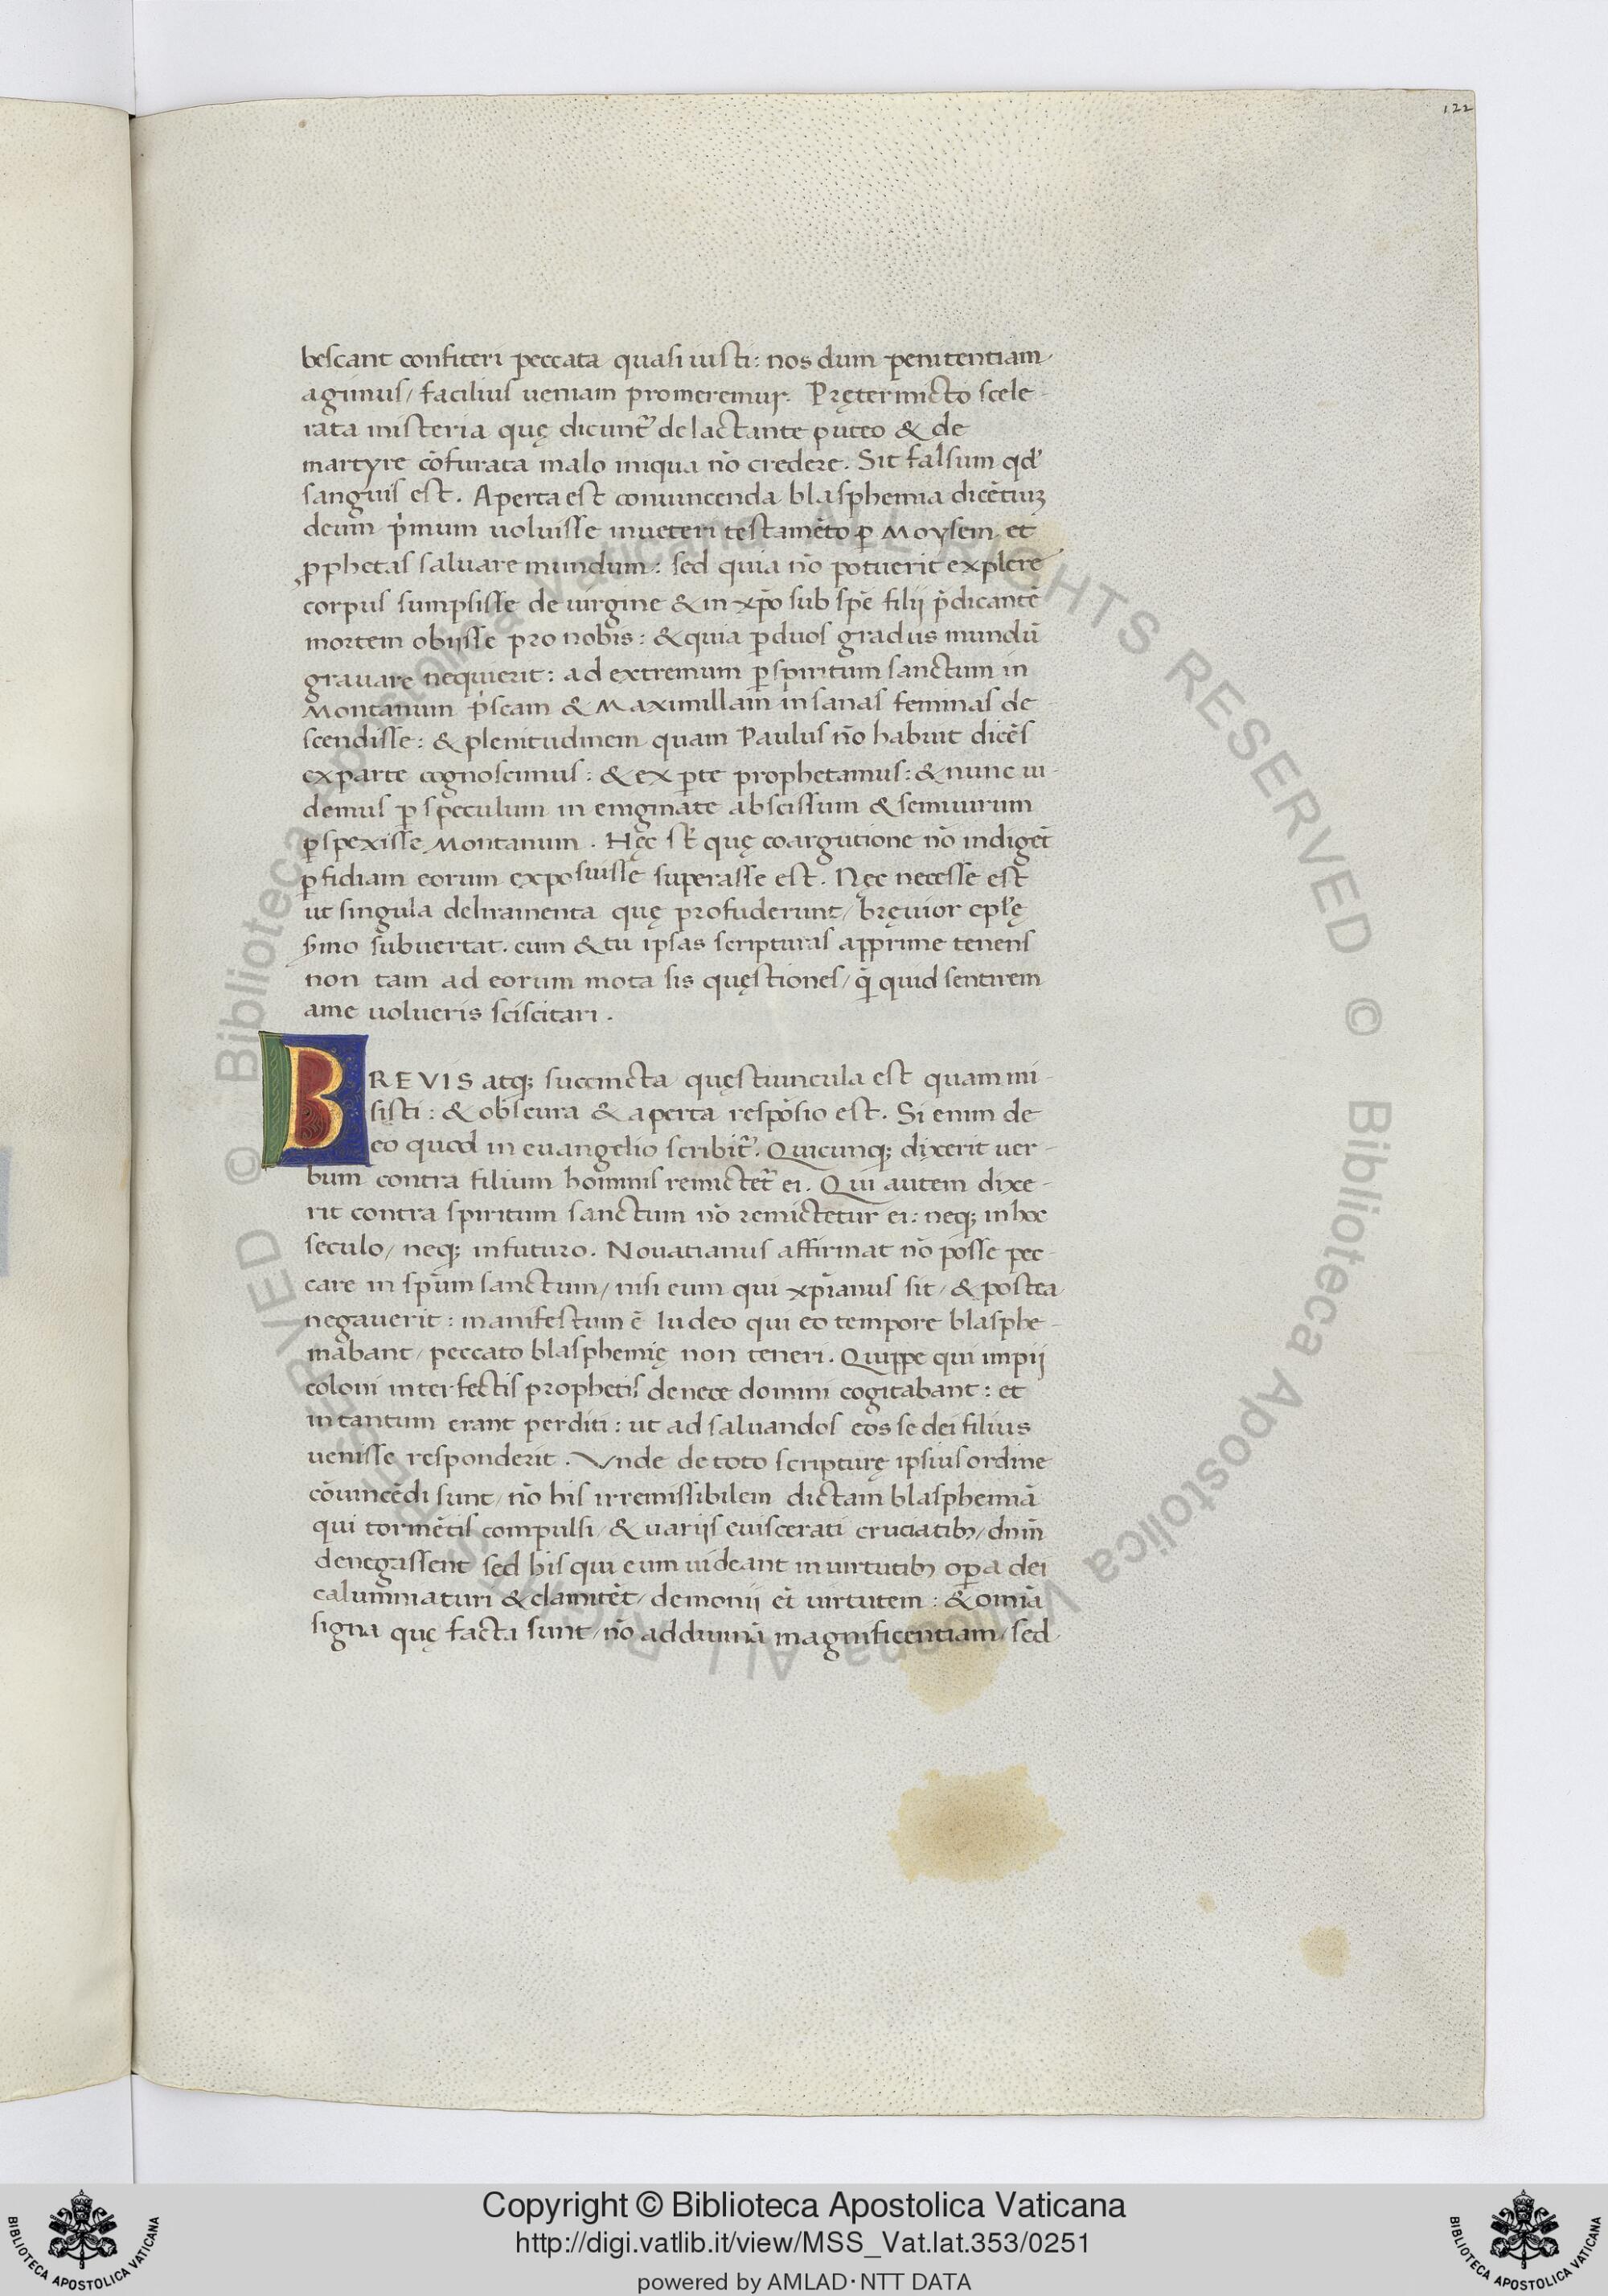 122
bescant confiteri peccata quasi iusti: nos dum penitentiam
agimus/ facilius ueniam promeremur. Prętermicto scele-
rata misteria quę dicunt᷑ de lactante puteo & de
martyre cōfurata malo iniqua nō credere. Sit falsum qđ
sanguis est. Aperta est conuincenda blasphemia dicētiuꝫ
deum p̓mum uoluisse inueteri testamēto ꝑ Moysem et
ꝓphetas saluare mundum: sed quia nō potuerit explere
corpus sumpsisse de uirgine & in xp̄o sub spē filij p̄dicantē
mortem obijsse pro nobis: & quia ꝑduos gradus mundū
grauare nequierit: ad extremum ꝑ spiritum sanctum in
Montanum p̓scam & Maximillam insanas feminas de-
scendisse: & plenitudinem quam Paulus nō habuit dicēs
exparte cognoscimus: & ex ꝑte prophetamus: & nunc ui-
demus ꝑ speculum in enigmate abscissum & semiuirum
ꝑspexisse Montanum. Hęc st̄ quę coargutione nō indigēt
ꝑfidiam eorum exposuisse superasse est. Nęc necesse est
ut singula deliramenta quę profuderunt/ bręuior epl̄ę
ẜmo subuertat. cum & tu ipsas scripturas apprime tenens
non tam ad eorum mota sis quęstiones/ q̄ quid sentirem
ame uolueris sciscitari.
BREVIS atq; succincta quęstiuncula est quam mi-
sisti: & obscura & aperta respōsio est. Si enim de
eo quod in euangelio scribit᷑. Quicunq; dixerit uer-
bum contra filium hominis remictet᷑ ei. Qui autem dixe-
rit contra spiritum sanctum nō remictetur ei: neq; inhoc
seculo/ neq; infuturo. Nouatianus affirmat nō posse pec-
care in spūm sanctum/ nisi eum qui xp̄ianus sit/ & postea
negauerit: manifestum ē Iudeo qui eo tempore blasphe-
mabant/ peccato blasphemię non teneri. Quippe qui impij
coloni interfectis prophetis denece domini cogitabant: et
intantum erant perditi: ut ad saluandos eos se dei filius
uenisse responderit. Vnde de toto scripturę ipsius ordine
cōuincēdi sunt/ nō his irremissibilem dictam blasphemiā
qui tormētis compulsi/ & uarijs euiscerati cruciatibꝫ/ dnm̄
denegassent sed his qui eum uideant inuirtutibꝫ oꝑa dei
calumniaturi & clamitēt/ demonij eē uirtutem: & omīa
signa quę facta sunt/ nō addiuinā magnificentiam/ sed
© Biblioteca Apostolica Vaticana ALL RIGHTS RESERVED
© Biblioteca Apostolica Vaticana ALL RIGHTS RESERVED
BIBLIOTECA APOSTOLICA VATICANA
Copyright © Biblioteca Apostolica Vaticana
http://digi.vatlib.it/view/MSS_Vat.lat.353/0251
powered by AMLAD·NTT DATA
BIBLIOTECA APOSTOLICA VATICANA